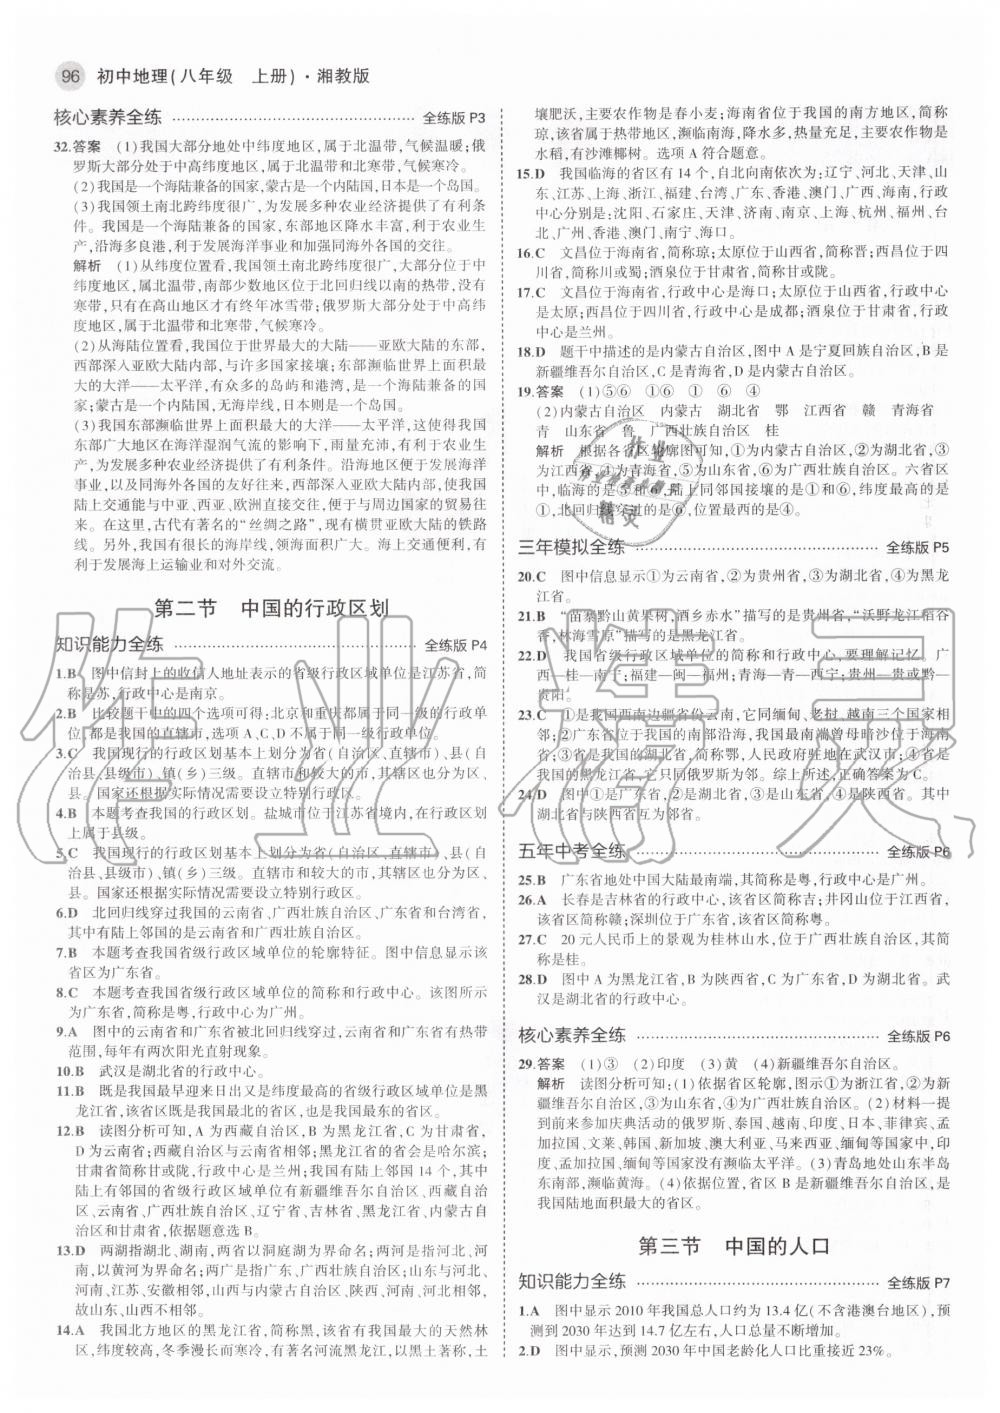 96 初中地理(八年级 上册)·湘教版
核心素养全练 全练版 P3
32.答案 (1)我国大部分地处中纬度地区,属于北温带,气候温暖;俄
罗斯大部分处于中高纬度地区,属于北温带和北寒带,气候寒冷。
(2)我国是一个海陆兼备的国家,蒙古是一个内陆国,日本是一个岛国。
(3)我国领土南北跨纬度很广,为发展多种农业经济提供了有利条
件。我国是一个海陆兼备的国家,东部地区降水丰富,利于农业生
产,沿海多良港,利于发展海洋事业和加强同海外各国的交往。
解析 (1)从纬度位置看,我国领土南北跨纬度很广,大部分位于中
纬度地区,属北温带,南部少数地区位于北回归线以南的热带,没有
寒带,只有在高山地区才有终年冰雪带;俄罗斯大部分处于中高纬
度地区,属于北温带和北寒带,气候寒冷。
(2)从海陆位置看,我国位于世界最大的大陆——亚欧大陆的东部,
西部深入亚欧大陆内部,与许多国家接壤;东部濒临世界上面积最
大的大洋——太平洋,有众多的岛屿和港湾,是一个海陆兼备的国
家;蒙古是一个内陆国,无海岸线,日本则是一个岛国。
(3)我国东部濒临世界上面积最大的大洋——太平洋,这使得我国
东部广大地区在海洋湿润气流的影响下,雨量充沛,有利于农业生
产,为发展多种农业经济提供了有利条件。沿海地区便于发展海洋
事业,以及同海外各国的友好往来。西部深入亚欧大陆内部,使我国
陆上交通能与中亚、西亚、欧洲直接交往,便于与周边国家的贸易
来往。在这里,古代有著名的“丝绸之路”,现有横贯亚欧大陆的铁路
线。另外,我国有很长的海岸线,海域面积广大。海上交通便利,有利
于发展海上运输业和对外交流。
第二节 中国的行政区划
知识能力全练 全练版 P4
1.B 图中信封上的收信人地址表示的省级行政区域单位是江苏省,简
称是苏,行政中心是南京。
2.B 比较题干中的四个选项可得:北京和重庆都属于同一级的行政单
位,都是我国的直辖市,选项 A、C、D 不属于同一级行政单位。
3.C 我国现行的行政区划基本上划分为省(自治区、直辖市)、县(自
治县、县级市)、镇(乡)三级。直辖市和较大的市,其辖区也分为区、
县。国家还根据实际情况需要设立特别行政区。
4.B 本题考查我国的行政区划。盐城市位于江苏省境内,在行政区划
上属于县级。
5.C 我国现行的行政区划基本上划分为省(自治区、直辖市)、县(自
治县、县级市)、镇(乡)三级。直辖市和较大的市,其辖区也分为区、
县。国家还根据实际情况需要设立特别行政区。
6.D 北回归线穿过我国的云南省、广西壮族自治区、广东省和台湾省,
其中有陆上邻国的是云南省和广西壮族自治区。
7.B 本题考查我国省级行政区域单位的轮廓特征。图中信息显示该
省区为广东省。
8.C 本题考查我国省级行政区域单位的简称和行政中心。该图所示
为广东省,简称是粤,行政中心是广州。
9.A 图中的云南省和广东省被北回归线穿过,云南省和广东省有热带
范围,每年有两次阳光直射现象。
10.B 武汉是湖北省的行政中心。
11.B 既是我国最早迎来日出又是纬度最高的省级行政区域单位是黑
龙江省,该省区既是我国最北的省区,也是我国最东的省区。
12.B 读图分析可知,A 为西藏自治区,B 为黑龙江省,C 为甘肃省,
D 为云南省;西藏自治区与云南省相邻;黑龙江省的省会是哈尔滨;
甘肃省简称甘或陇,行政中心是兰州;我国陆上邻国 14 个,其中
陆上有邻国的省级行政区域单位有新疆维吾尔自治区、西藏自治
区、云南省、广西壮族自治区、辽宁省、吉林省、黑龙江省、内蒙古自
治区和甘肃省,依据题意选 B。
13.D 两湖指湖北、湖南,两省以洞庭湖为界命名;两河是指河北、河
南,以黄河为界命名;两广是指广西、广东。山西与陕西相邻,河北与
河南、江苏、安徽相邻,山西与内蒙古自治区、陕西、河南、河北相邻,
故山东、山西不相邻。
14.A 我国北方地区的黑龙江省,简称黑,该省有我国最大的天然林
区,纬度较高,冬季漫长而寒冷,有著名河流黑龙江,以黑土为主,土
壤肥沃,主要农作物是春小麦;海南省位于我国的南方地区,简称
琼,该省属于热带地区,濒临南海,降水多,热量充足,主要农作物是
水稻,有沙滩椰树。选项 A 符合题意。
15.D 我国临海的省区有 14 个,自北向南依次为:辽宁、河北、天津、山
东、江苏、上海、浙江、福建、台湾、广东、香港、澳门、广西、海南,行政
中心分别是:沈阳、石家庄、天津、济南、南京、上海、杭州、福州、台
北、广州、香港、澳门、南宁、海口。
16.C 文昌位于海南省,简称琼;太原位于山西省,简称晋;西昌位于四
川省,简称川或蜀;酒泉位于甘肃省,简称甘或陇。
17.C 文昌位于海南省,行政中心是海口;太原位于山西省,行政中心
是太原;西昌位于四川省,行政中心是成都;酒泉位于甘肃省,行政
中心是兰州。
18.D 题干中描述的是内蒙古自治区,图中 A 是宁夏回族自治区,B 是
新疆维吾尔自治区,C 是青海省,D 是内蒙古自治区。
19.答案 (1)⑤⑥ ①⑥ ① ⑥ ④
(2)内蒙古自治区 内蒙古 湖北省 鄂 江西省 赣 青海省
青 山东省 鲁 广西壮族自治区 桂
解析 根据各省区轮廓图可知,①为内蒙古自治区,②为湖北省,③
为江西省,④为青海省,⑤为山东省,⑥为广西壮族自治区。六省区
中,临海的是⑤和⑥,陆上同邻国接壤的是①和⑥,纬度最高的是
①,北回归线穿过的是⑥,位置最西的是④。
三年模拟全练 全练版 P5
20.C 图中信息显示①为云南省,②为贵州省,③为湖北省,④为黑龙
江省。
21.B “苗寨黔山黄果树,酒乡赤水”描写的是贵州省,“沃野龙江稻谷
香,林海雪原”描写的是黑龙江省。
22.D 我国省级行政区域单位的简称和行政中心,要理解记忆。广
西—桂—南宁;福建—闽—福州;青海—青—西宁;贵州—贵或黔—
贵阳。
23.C ①是我国西南边疆省份云南,它同缅甸、老挝、越南三个国家相
邻;②广东省位于我国的南部沿海,我国最南端曾母暗沙位于海南
省;③省是我国的湖北省,简称鄂,人民政府驻地在武汉市;④省是
我国的黑龙江省,它只同俄罗斯为邻。综上所述,正确答案为 C。
24.D 图中①是广东省,②是湖北省,③是山东省,④是陕西省。其中
湖北省与陕西省互为邻省。
五年中考全练 全练版 P6
25.B 广东省地处中国大陆最南端,其简称是粤,行政中心是广州。
26.A 长春是吉林省的行政中心,该省区简称吉;井冈山位于江西省,
该省区简称赣;深圳位于广东省,该省区简称粤。
27.C 20 元人民币上的景观为桂林山水,位于广西壮族自治区,其简
称是桂。
28.D 图中 A 为黑龙江省,B 为陕西省,C 为广东省,D 为湖北省。武
汉是湖北省的行政中心。
核心素养全练 全练版 P6
29.答案 (1)③ (2)印度 (3)黄 (4)新疆维吾尔自治区。
解析 读图分析可知:(1)依据省区轮廓,图示①为浙江省,②为新
疆维吾尔自治区,③为山东省,④为广西壮族自治区。(2)材料一提
到前来参加庆典活动的俄罗斯、泰国、越南、印度、日本、菲律宾、孟
加拉国、文莱、韩国、新加坡、澳大利亚、马来西亚、缅甸等国家中,印
度、孟加拉国、缅甸等国家没有濒临太平洋。(3)青岛地处山东半岛
东南部,濒临黄海。(4)依据位置,省区 B 是新疆维吾尔自治区,是
我国陆地面积最大的省区。
第三节 中国的人口
知识能力全练 全练版 P7
1.A 图中显示 2010 年我国总人口约为 13.4 亿(不含港澳台地区),预
测到 2030 年达到 14.7 亿左右,人口总量不断增加。
2.D 图中显示,预测 2030 年中国老龄化人口比重接近 23%。
作业精灵